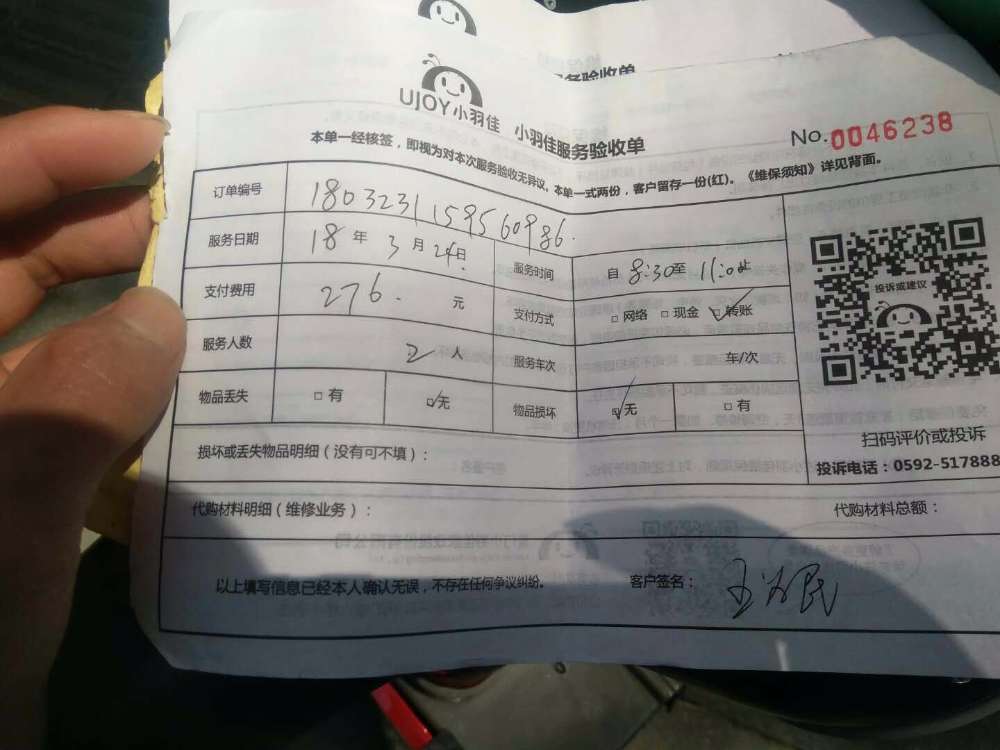 服务验收单
UJOY小羽佳 小羽佳服务验收单
No.0046238
本单一经核签，即视为对本次服务验收无异议，本单一式两份，客户留存一份(红)。《维保须知》详见背面。
订单编号 1803231159560986.
服务日期 18年3月24日 服务时间 自8:30至11:0止
支付费用 276. 元 支付方式 □网络 □现金 ☑转账
服务人数 2人 服务车次 车/次
物品丢失 □有 ☑无 物品损坏 ☑无 □有
投诉或建议
扫码评价或投诉
投诉电话：0592-517888
损坏或丢失物品明细（没有可不填）：
代购材料明细（维修业务）： 代购材料总额：
以上填写信息已经本人确认无误，不存在任何争议纠纷。 客户签名： 王为民